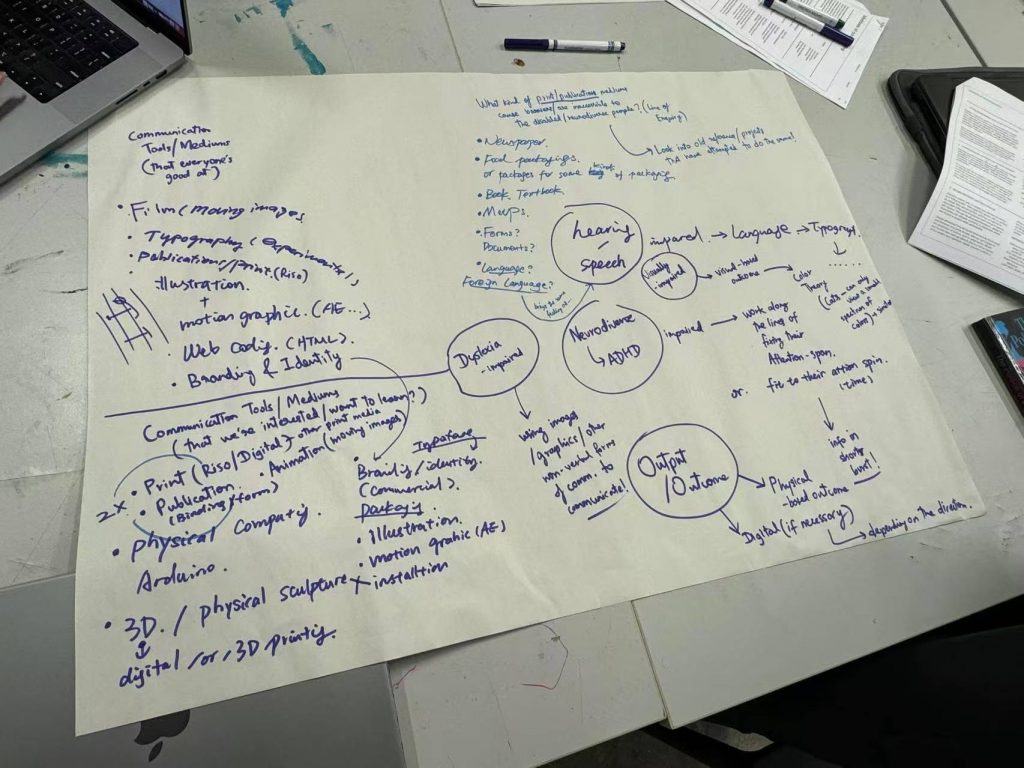 Communication
Tools/Mediums
(that everyone's
good at)
• Film (moving images
• Typography (experimental),
• Publications/Print (Riso)
illustration.
+
motion graphic. (AE...)
• Web Coding. (HTML).
• Branding & Identity
Communication Tools/Mediums
(that we're interested/want to learn?)
2x
• Print (Riso/Digital) other print media
• Publication.
(Binding/form)
• Animation (moving images)
• physical Computing.
Arduino.
• 3D. / physical sculpture
digital/or, 3D printing.
Branding/identity.
(Commercial).
packaging
• Illustration.
• motion grahic (AE)
+ installtion
What kind of print/publications mediums
cause barriers/are inaccessible to
the disabled/neurodiverse people? (Line of
Enquiry)
Look into old reference/projects
that have attempted to do the same!
• Newspaper.
• Food packagings.
or packages for some kinds of packaging
• Book, Textbook
• Maps.
• Forms?
Documents?
• Language?
Foreign Language?
hearing
speech
impared → Language → Typograph.
......
Visually
impaired
visual-based
outcome
Color
Theory
Neurodiverse
↳ ADHD
impaired
work along
the lines of
fixing their
Attention-span.
or. fit to their attion spin.
(time)
info in
short
burst!
Dyslexia
-impaired
using images
/graphics/other
non-verbal forms
of comm. to
communicate!
Output
/Outcome
Physical
-based outcome
Digital (if necessary)
depending on the direction.